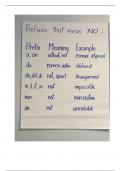 Prefixes that mean 'NO':
Prefix Meaning Example
a, an without, not
de reverse action deformed
dis, dif, di not, apart disarrangement
in, il, ir, im not impossible
non not non-native
un not unreliable